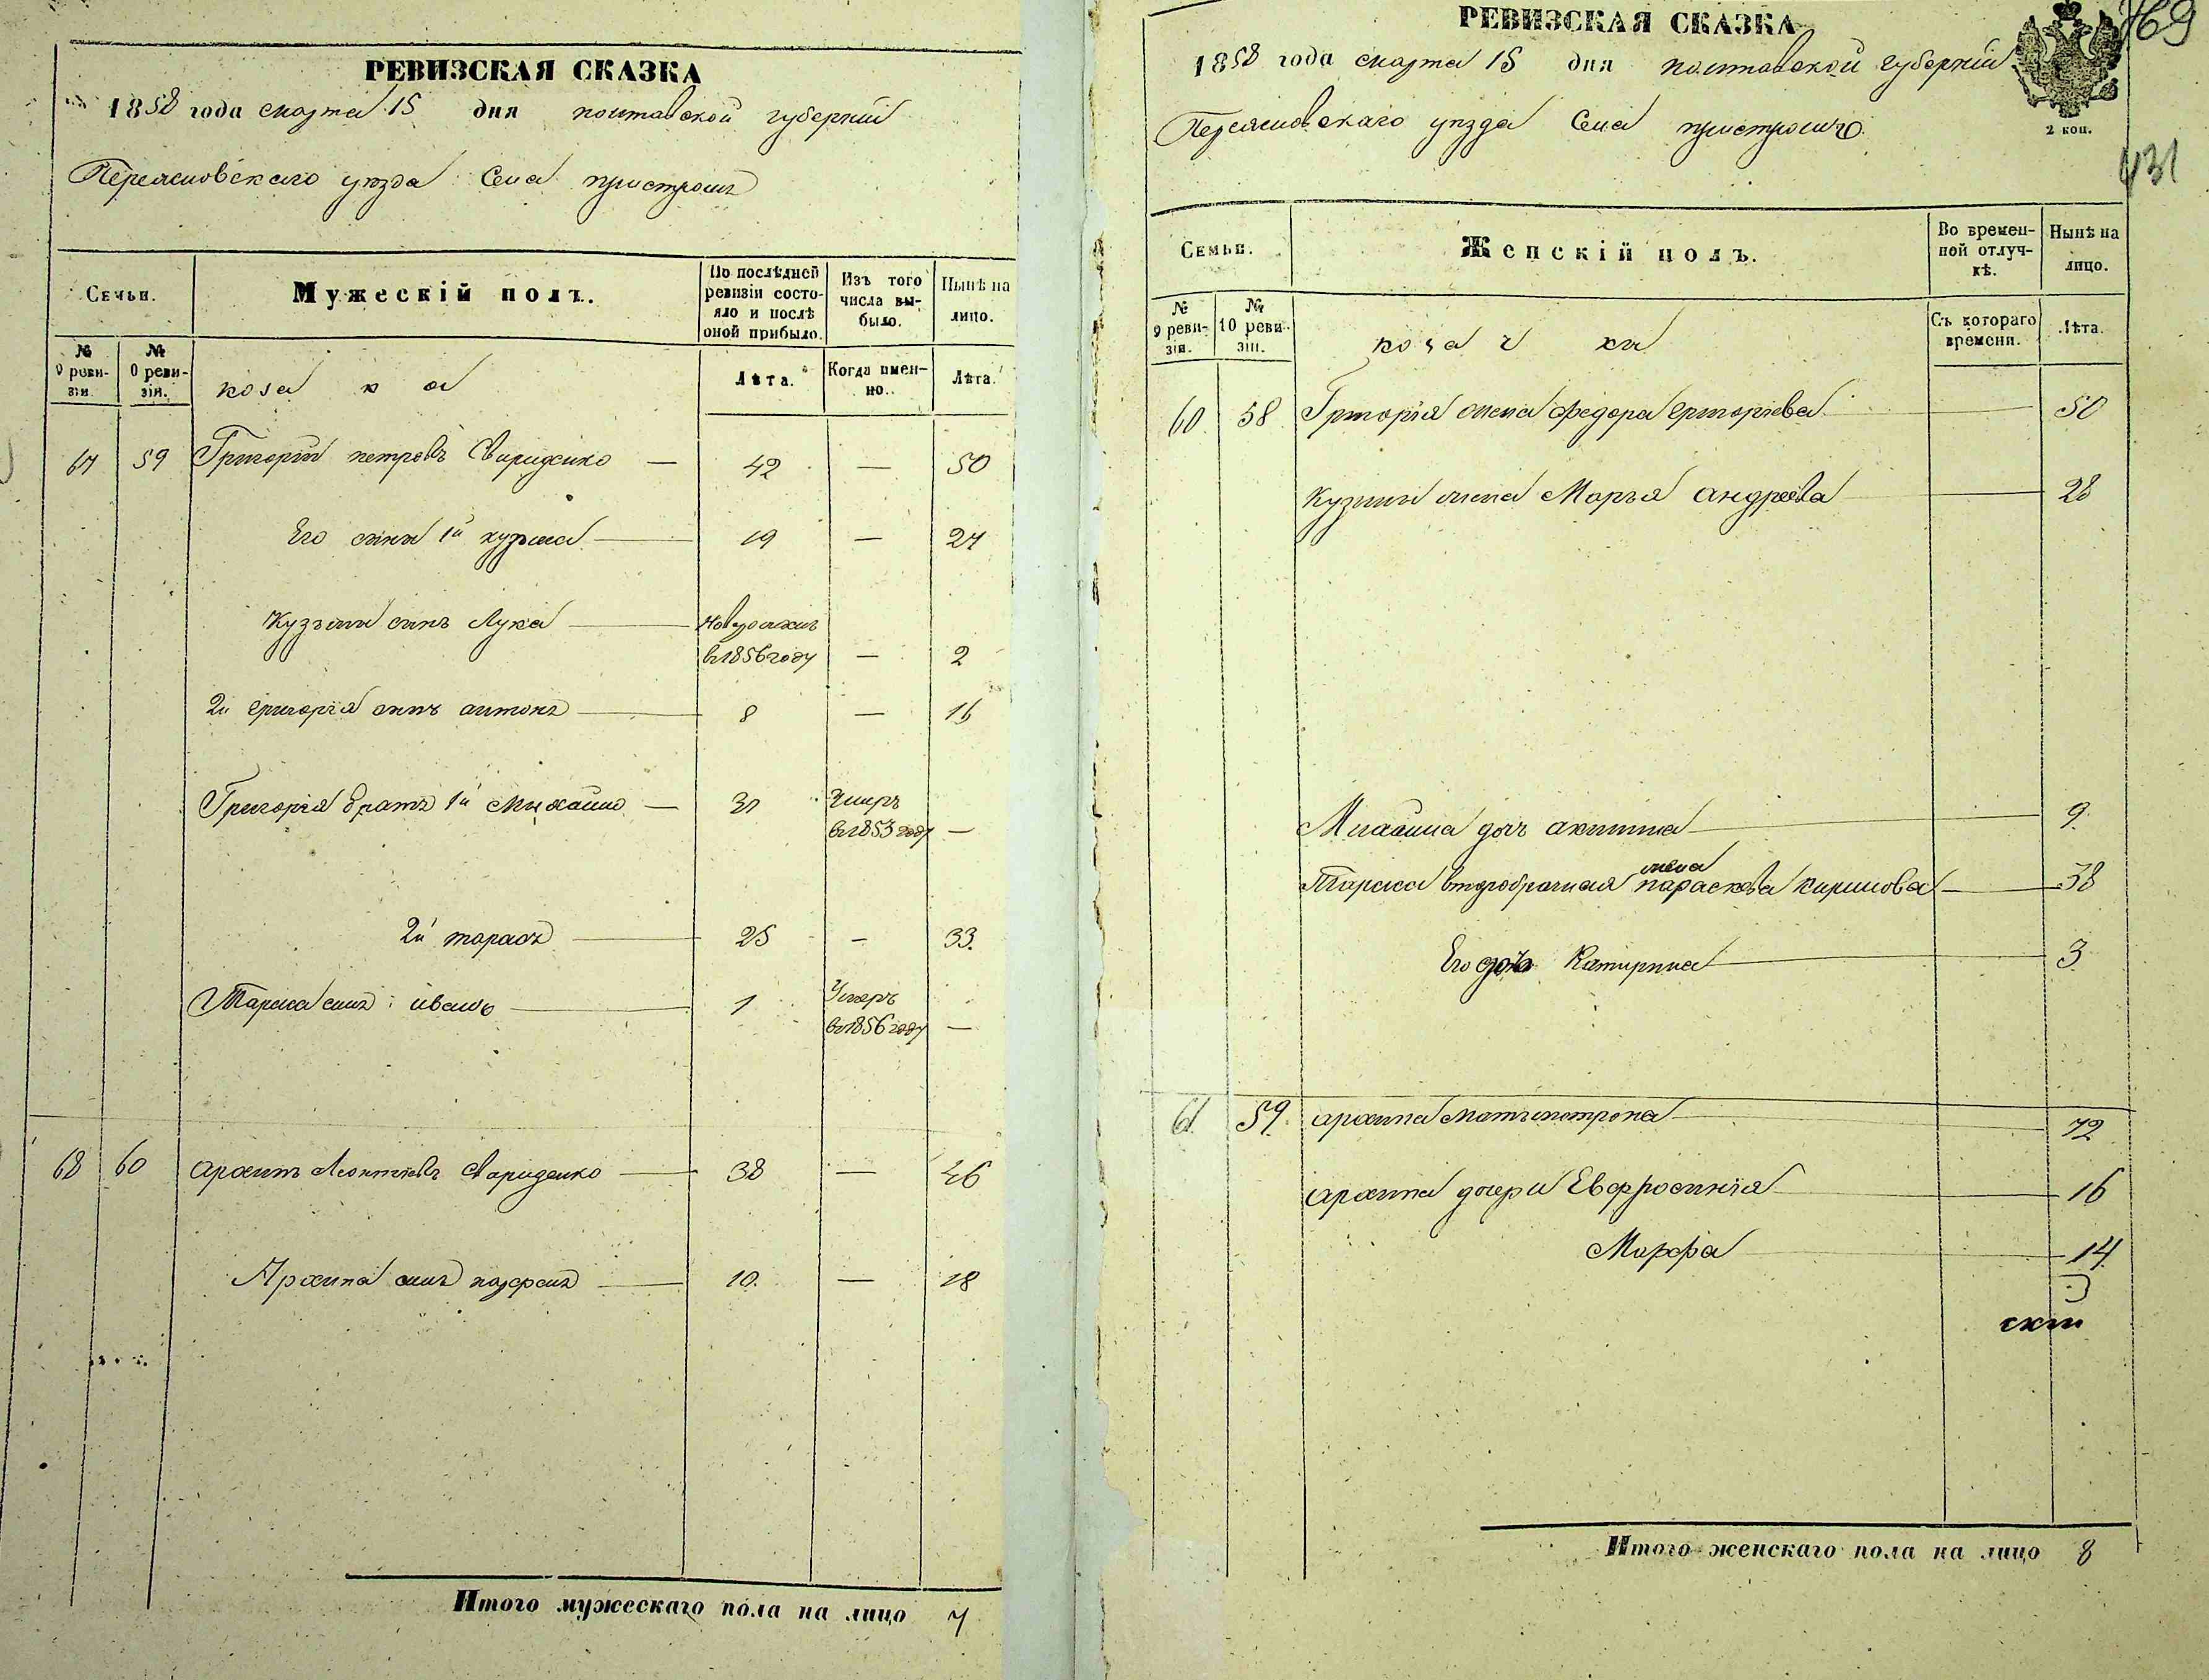 РЕВИЗСКАЯ СКАЗКА
1858 года марта 15 дня полтавской губернии
Переясловскаго уезда Села пристромъ
Семьи.
Мужескій полъ.
По послѣдней ревизіи состояло и послѣ оной прибыло.
Изъ того числа выбыло.
Нынѣ на лицо.
№ 9 ревизіи.
№ 10 ревизіи.
козака
Лѣта.
Когда именно.
Лѣта.
67 59 Григорій петровъ Свириденко — 42 — 50
Его сини 1й кузьма 19 — 27
Кузьми синъ Лука новурожин в 1856 году — 2
2й григорія синъ антонъ 8 — 16
Григорія братъ 1й Михайло — 31 Умеръ в 1853 году —
2й тарасъ 25 — 33.
Тараса синъ иванъ 1 Умеръ в 1856 году —
68 60 архипъ Леонтіевъ Свириденко 38 — 46
Архипа синъ парфенъ 10. — 18
Итого мужескаго пола на лицо 7
РЕВИЗСКАЯ СКАЗКА
769
1858 года марта 15 дня полтавской губерніи
Переясловскаго уезда Села пристромъ
2 коп.
431
Семьи.
Женскій полъ.
Во временной отлучкѣ.
Нынѣ на лицо.
№ 9 ревизіи.
№ 10 ревизіи.
козачки
Съ котораго времени.
Лѣта.
60. 58. Григорія жена федора григорієва 50
Кузьми жена Марья андреева 28
Михайла дочь акилина 9.
Тараса второбрачная жена параскева кирилова 38
Его дочь Катирина 3
61. 59. архипа мать мотрона 72
архипа дочери Евфросинія 16
Марфа 14.
Итого женскаго пола на лицо 8